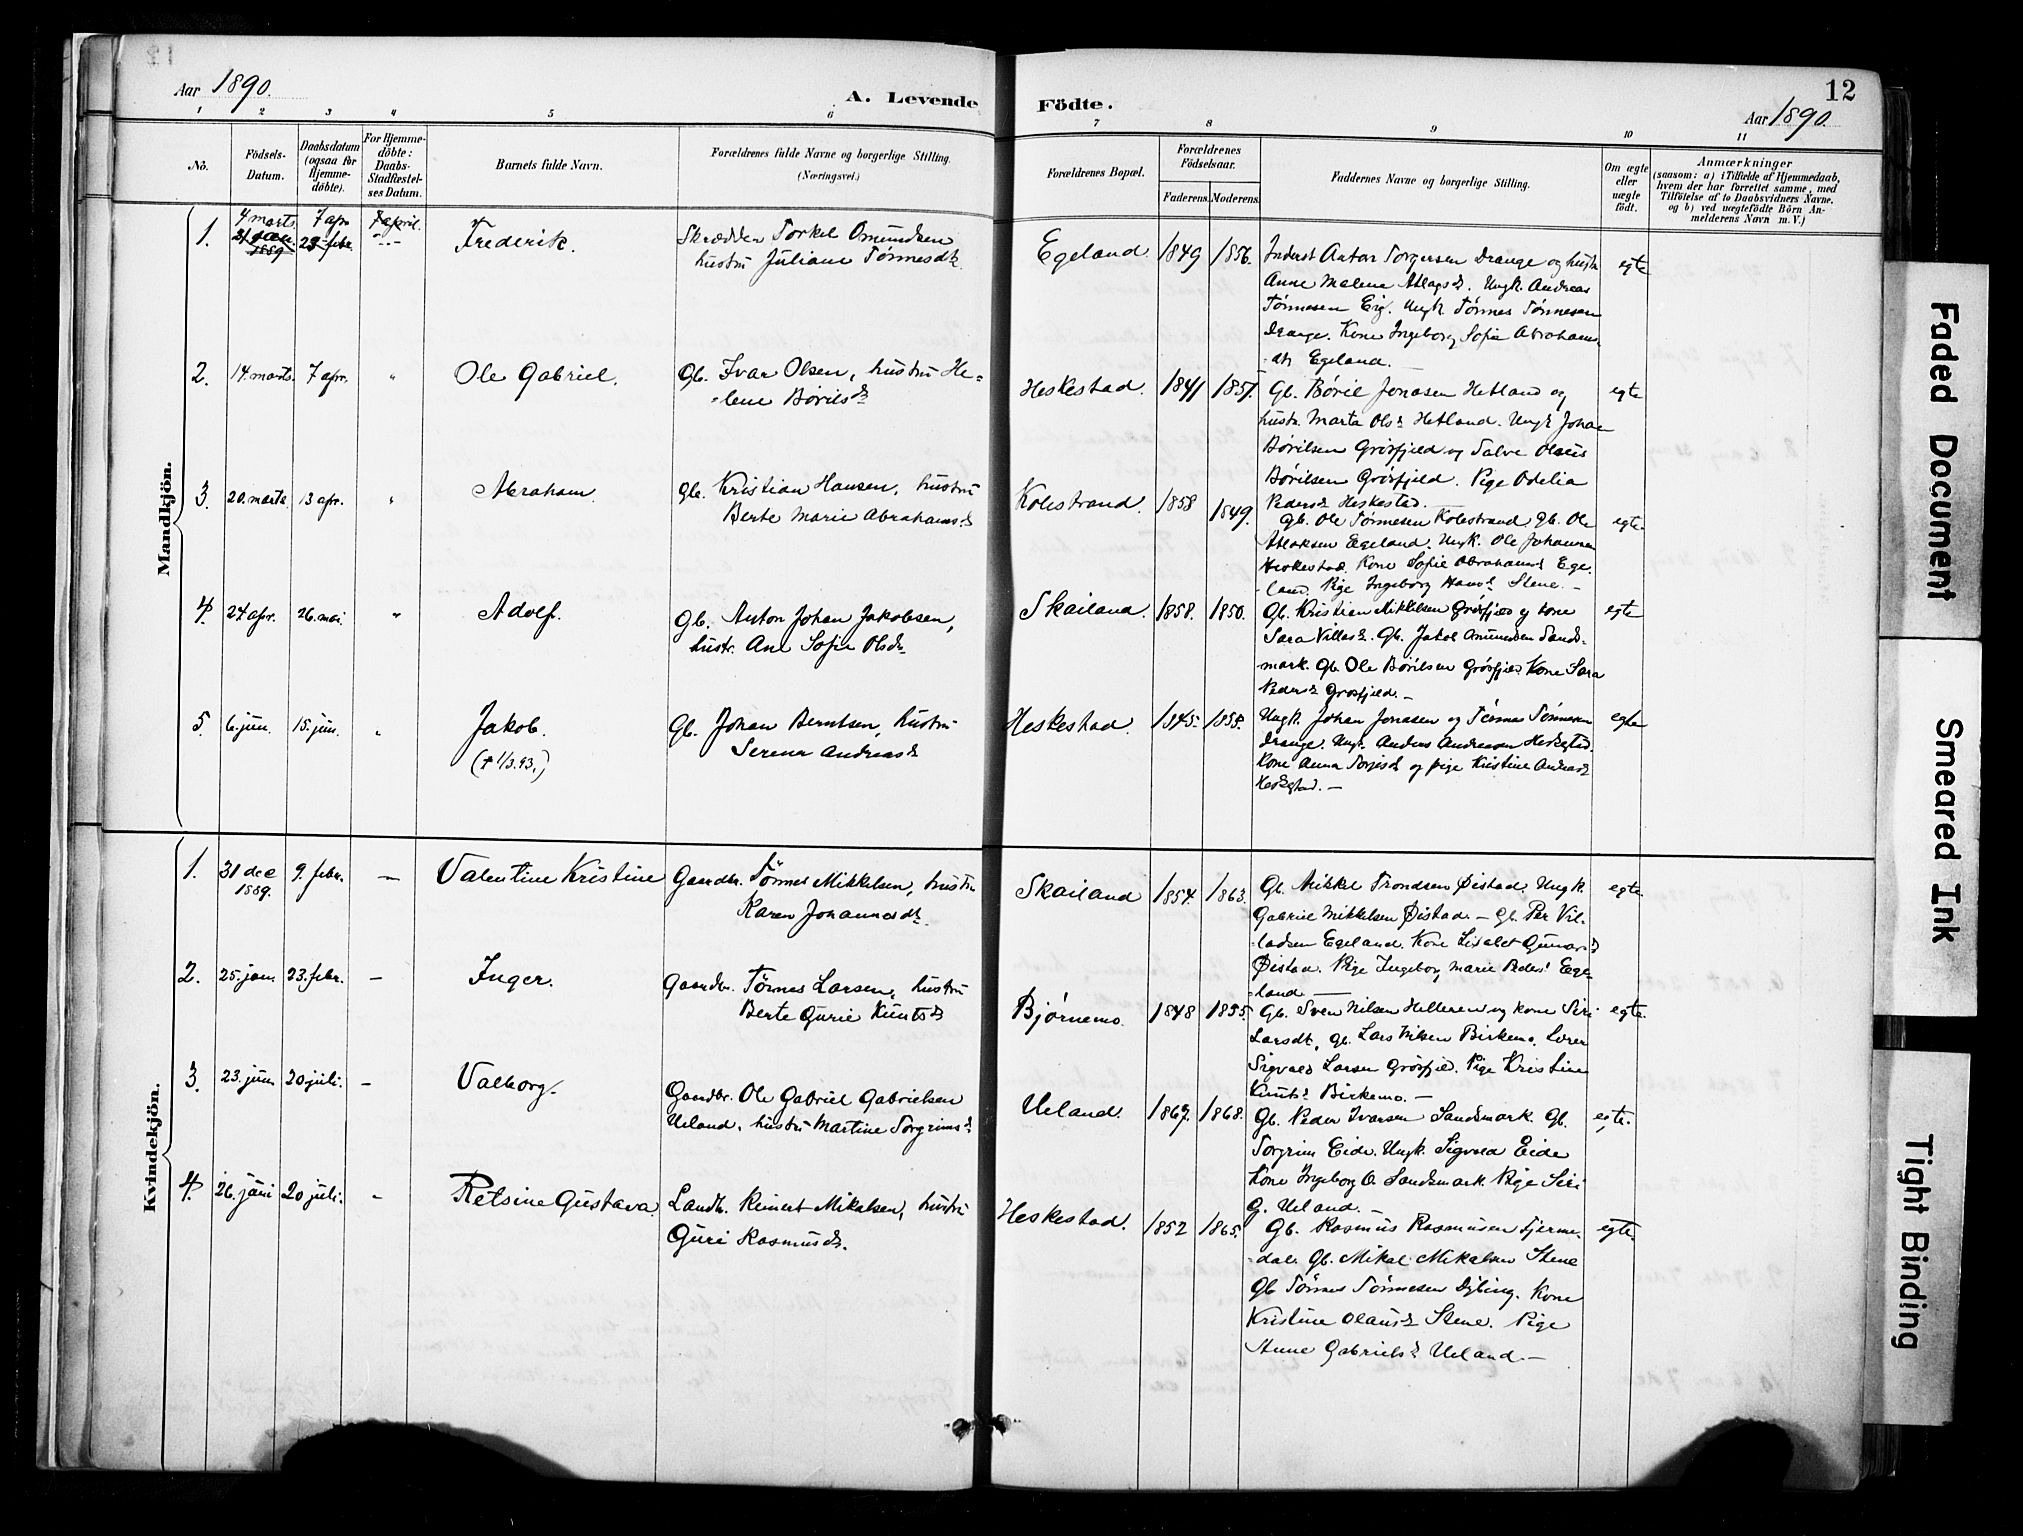 12
Aar 1890.
A. Levende Födte.
Aar 1890.
1 2 3 4 5 6 7 8 9 10 11
No.
Födsels-Datum.
Daabsdatum (ogsaa för Hjemmedöbte).
For Hjemmedöbte: Daabs-Stadfæstelses Datum.
Barnets fulde Navn.
Forældrenes fulde Navne og borgerlige Stilling.
(Næringsvei.)
Forældrenes Bopæl.
Forældrenes Födselsaar.
Faderens. Moderens.
Faddernes Navne og borgerlige Stilling.
Om ægte eller uægte födt.
Anmærkninger
(saasom: a) i Tilfælde af Hjemmedaab, hvem der har forrettet samme, med Tilföielse af to Daabsvidners Navne, og b) ved uægtefödte Börn Anmelderens Navn m. V.)
Mandkjön.
1. 4 marts 7 apr 7 april.
Frederik.
Skrædder Torkel Omundsen
hustru Juliane Tønnesdt.
Egeland 1849 1856.
Inderst Anton Torgersen Drange og hustr
Anne Malene Atlagsd. Ungk. Andreas
Tønnesen Eig. Ungk Tønnes Tønnesen
Drange. Kone Ingeborg Sofie Abrahams-
dt Egeland.
egte
2. 14. marts. 7 apr. "
Ole Gabriel.
Gb. Ivar Olsen, hustru He-
lene Børilsdt
Heskestad. 1841 1857.
Gb. Børil Jonasen Hetland og
hustr. Marta Olsd Hetland. Ungk Johan
Børilsen Grøsfjeld og Salve Olaus
Børilsen Grøsfjeld. Pige Odelia
Pedersd Heskestad.
egte
3. 20. marts 13 apr. "
Abraham.
Gb. Kristian Hansen, hustru
Berte Marie Abrahamsd
Kolestrand. 1858 1849.
Gb. Ole Tønnesen Kolestrand. Gb. Ole
Atlaksen Egeland. Ungk. Ole Johannesen
Heskestad. Kone Sofie Abrahamsd Ege-
land. Pige Ingeborg Hansd Stene.
egte.
4. 24. apr. 26. mai. "
Adolf.
Gb. Anton Johan Jakobsen,
hustr. Ane Sofie Olsdt.
Skailand. 1858. 1850.
Gb. Kristian Mikkelsen Grøsfjeld og kone
Sara Villasd. Gb. Jakob Omundsen Sands-
mark. Gb. Ole Børilsen Grøsfjeld Kone Sara
Pedersd Grøsfjeld.
egte
5. 6. jun. 15. jun. "
Jakob.
(† 1/3.93.)
Gb. Johan Berntsen, hustru
Serena Andreasd
Heskestad. 1845. 1855.
Ungk. Johan Jonasen og Tønnes Tønnesen
Drange. Ungk. Anders Andreasen Heskestad.
Kone Anna Torjesd og pige Kristine Andreasd
Heskestad.
egte
Kvindekjön.
1. 31 dec 1889. 9. febr. —
Valentine Kristine
Gaardbr. Tønnes Mikkelsen, hustru
Karen Johannesdt.
Skailand 1854. 1863.
Gb. Mikkel Trondsen Øistad. Ungk
Gabriel Mikkelsen Øistad. — Gb. Per Vil-
ladsen Egeland. Kone Lisabet Gunarsd
Øistad. Pige Ingeborg Marie Peders' Ege-
land
egte.
2. 25. jan. 23. febr. —
Inger.
Gaardbr. Tønnes Larsen, hustru
Berte Gurie Knutsd
Bjørnemo. 1848 1855.
Gb. Sven Nilsen Helleren og kone Siri
Larsdt, Gb. Lars Nilsen Birkemo. Lærer
Sigvald Larsen Grøsfjeld. Pige Kristine
Knutsd Birkemo.
egte.
3. 23. juni 20 juli. —
Valborg.
Gaardbr. Ole Gabriel Gabrielsen
Ueland, hustru Martine Torgrimsd
Ueland. 1867. 1868.
Gb. Peder Ivarsen Sandsmark. Gb.
Torgrim Eide. Ungk. Sigvald Eide
Kone Ingeborg O. Sandsmark Pige Siri
G. Ueland.
egte.
4. 26. juni 20 juli.
Retsine Gustava.
Landh. Reinert Mikalsen, hustru
Guri Rasmusdt.
Heskestad. 1852 1865.
Gb. Rasmus Rasmusen Tjerme-
dal. Gb. Mikal Mikalsen Stene
Gb Tønnes Tønnesen Dybing. Kone
Kristine Olausd Stene. Pige
Anne Gabrielsd Ueland.
egte.
Faded Document
Smeared Ink
Tight Binding